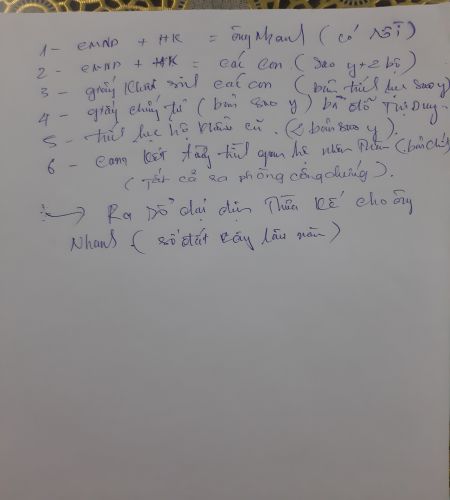 1- CMND + HK = ông Nhanh (có rồi)
2- CMND + HK = các con (sao y + 2 bộ)
3- giấy khai sinh các con (bản trích lục sao y)
4- giấy chứng tử (bản sao y) bà Đỗ Thị Duy-
5- trích lục hộ khẩu cũ. (2 bản sao y).
6- Cam kết tường trình quan hệ nhân thân (bản chính)
(tất cả ra phòng công chứng).
Ra đại diện Thừa kế cho ông
Nhanh (sổ đất cây lâu năm)